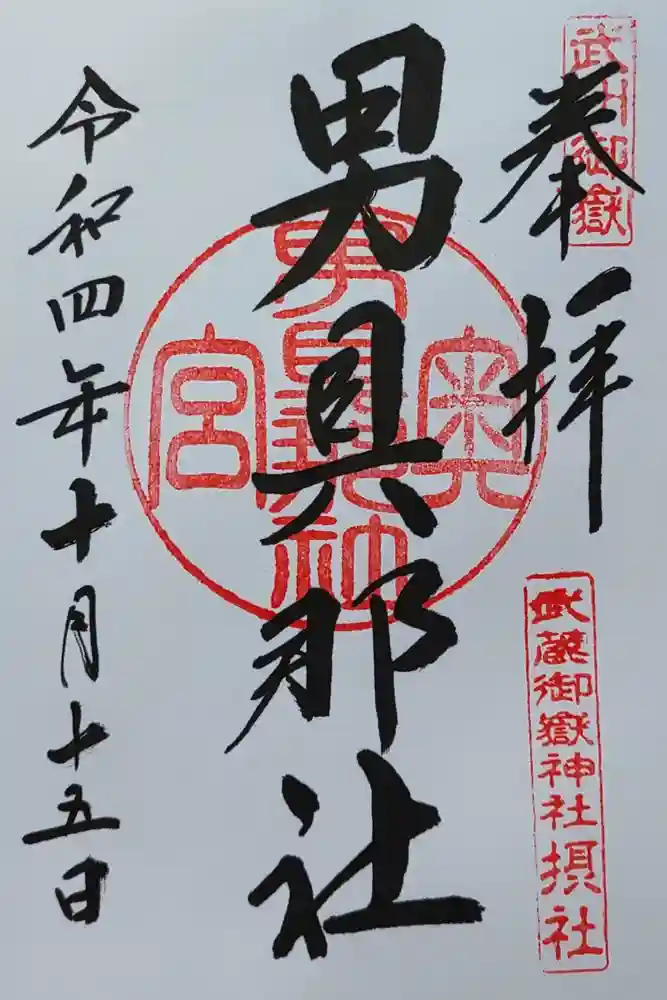 武州御嶽
奉拝
武蔵御嶽神社摂社
男具那社
奥宮
令和四年十月十五日